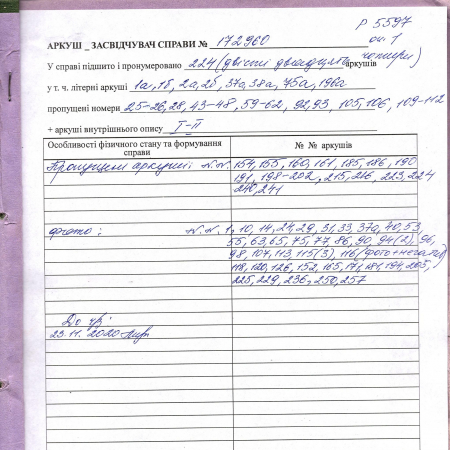 Р 5597
оп. 1
АРКУШ _ ЗАСВІДЧУВАЧ СПРАВИ № 172960
У справі підшито і пронумеровано 224 (двісті двадцять чотири) аркушів
у т. ч. літерні аркуші 1а, 1б, 2а, 2б, 37а, 38а, 75а, 196а
пропущені номери 25-26, 28, 43-48, 59-62, 92, 93, 105, 106, 109-112
+ аркуші внутрішнього опису I-II
Особливості фізичного стану та формування справи
№ № аркушів
Пропущені аркуші: N.N. 154, 155, 160, 161, 185, 186, 190
191, 198-202, 215, 216, 223, 224
240, 241
фото: N.N. 1, 10, 14, 24, 29, 31, 33, 37а, 40, 53
55, 63, 65, 75, 77, 86, 90, 94(2), 96,
98, 107, 113, 115(3), 116 (фото+негатив)
118, 120, 126, 152, 165, 171, 181, 194, 205,
225, 229, 236, 250, 257
До ч/з
23.11.2020